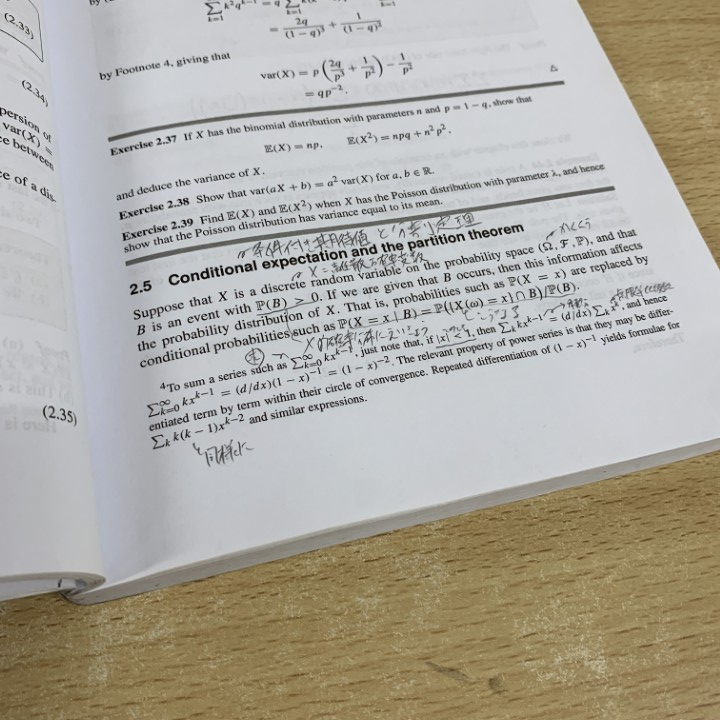 (2.33)
(2.34)
persion of
var(X) =
ce between
ce of a dis-
(2.35)
by
= 2q/(1 − q)³ + 1/(1 − q)²
by Footnote 4, giving that
var(X) = p (2q/p³ + 1/p²) − 1/p²
= qp⁻².
△
Exercise 2.37 If X has the binomial distribution with parameters n and p = 1 − q, show that
𝔼(X) = np, 𝔼(X²) = npq + n²p²,
and deduce the variance of X.
Exercise 2.38 Show that var(aX + b) = a² var(X) for a, b ∈ ℝ.
Exercise 2.39 Find 𝔼(X) and 𝔼(X²) when X has the Poisson distribution with parameter λ, and hence
show that the Poisson distribution has variance equal to its mean.
条件付き期待値と分割定理
2.5 Conditional expectation and the partition theorem
X = 離散な確率変数
Suppose that X is a discrete random variable on the probability space (Ω, ℱ, ℙ), and that
B is an event with ℙ(B) > 0. If we are given that B occurs, then this information affects
the probability distribution of X. That is, probabilities such as ℙ(X = x) are replaced by
conditional probabilities such as ℙ(X = x | B) = ℙ({X(ω) = x} ∩ B)/ℙ(B).
⁴To sum a series such as ∑∞k=0 kxᵏ⁻¹, just note that, if |x| < 1, then ∑k kxᵏ⁻¹ = (d/dx) ∑k xᵏ, and hence
∑∞k=0 kxᵏ⁻¹ = (d/dx)(1 − x)⁻¹ = (1 − x)⁻². The relevant property of power series is that they may be differ-
entiated term by term within their circle of convergence. Repeated differentiation of (1 − x)⁻¹ yields formulae for
∑k k(k − 1)xᵏ⁻² and similar expressions.
同様に